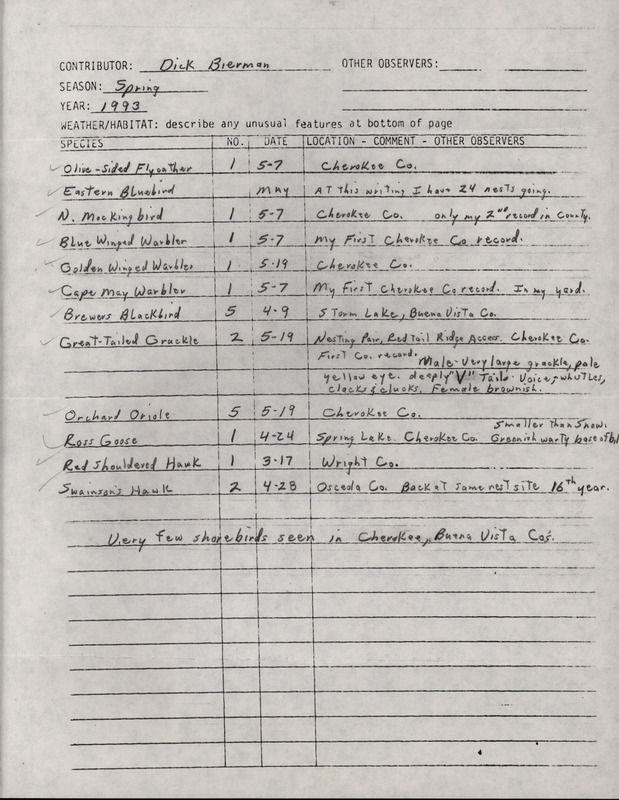 CONTRIBUTOR: Dick Bierman OTHER OBSERVERS:
SEASON: Spring
YEAR: 1993
WEATHER/HABITAT: describe any unusual features at bottom of page
SPECIES NO. DATE LOCATION - COMMENT - OTHER OBSERVERS
Olive-Sided Flycather 1 5-7 Cherokee Co.
Eastern Bluebird may AT This writing I have 24 nests going.
N. Mockingbird 1 5-7 Cherokee Co. only my 2nd record in County.
Blue Winged Warbler 1 5-7 My First Cherokee Co record.
Golden Winged Warbler 1 5-19 Cherokee Co.
Cape May Warbler 1 5-7 My First Cherokee Co record. In my yard.
Brewers Blackbird 5 4-9 Storm Lake, Buena Vista Co.
Great-Tailed Grackle 2 5-19 Nesting Pair, Red Tail Ridge Access. Cherokee Co.
First Co. record. Male-Very large grackle, pale
yellow eye. deeply "V" Tail. Voice; whistles,
clacks & clucks. Female brownish.
Orchard Oriole 5 5-19 Cherokee Co.
Smaller Than Snow.
Ross Goose 1 4-24 Spring Lake. Cherokee Co. Greenish warty base of bill
Red Shouldered Hawk 1 3-17 Wright Co.
Swainson's Hawk 2 4-28 Osceola Co. Back at same nest site 16th year.
Very few shorebirds seen in Cherokee, Buena Vista Co's.